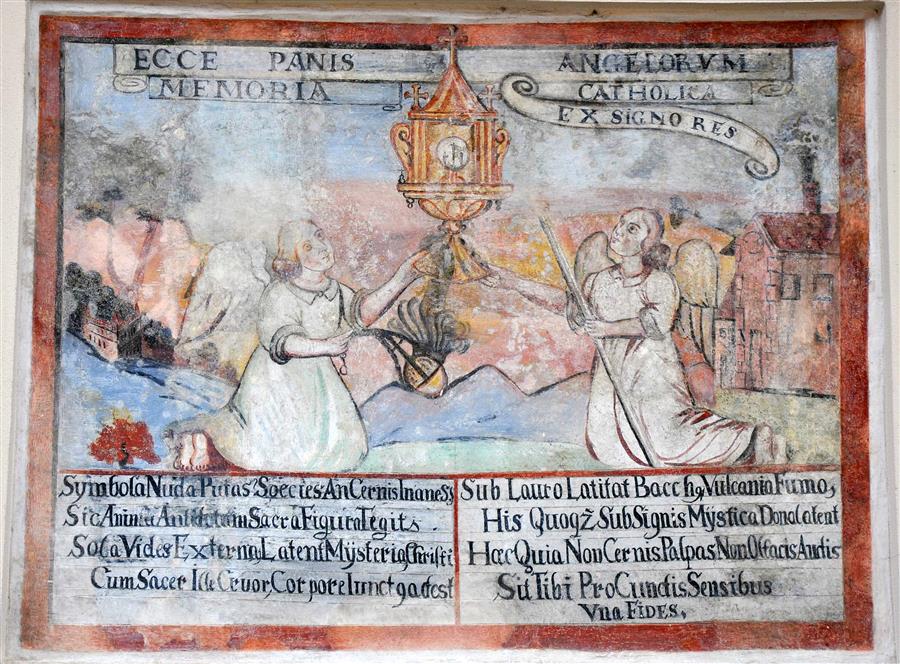 ECCE PANIS ANGELORVM
MEMORIA CATHOLICA
EX SIGNO RES
Symbola Nuda Putas Species An Cernis Inanes
Sic Animae Antidotum Sacra Figura Tegit.
Sola Vides Externa, Latent Mÿsteria Christi
Cum Sacer Ille Cruor, Corpore Iunct9 adest
Sub Lauro Latitat Bacch9, Vulcania Fumo,
His Quoqz Sub Signis Mÿstica Dona latent
Haec Quia Non Cernis Palpas Non Olfacis Audis
Sit Tibi Pro Cunctis Sensibus
Vna FIDES.